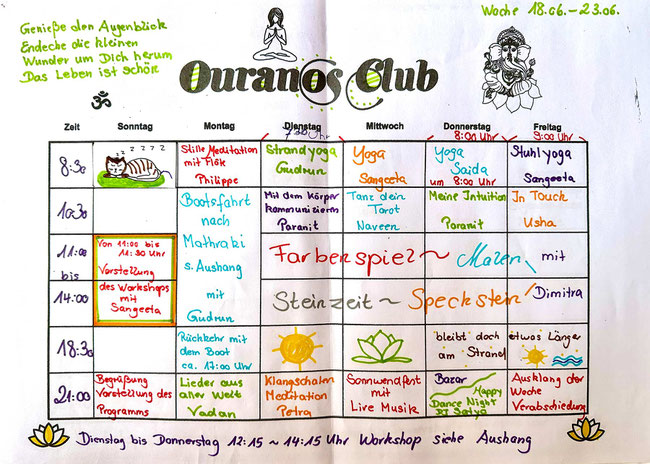 Genieße den Augenblick
Endecke die kleinen
Wunder um Dich herum
Das Leben ist schön
Woche 18.06. – 23.06.
ॐ
Ouranos Club
7:30 Uhr
8:00 Uhr
9:00 Uhr
Zeit Sonntag Montag Dienstag Mittwoch Donnerstag Freitag
8:30
z z z z z
Stille Meditation
mit Fisk
Philippe
Strandyoga
Gudrun
Yoga
Sangeeta
Yoga
Saida
um 8:00 Uhr
Stuhlyoga
Sangeeta
10:30
Bootsfahrt
nach
Mathraki
s. Aushang
mit
Gudrun
Mit dem Körper
kommunizieren
Paranit
Tanz dein
Tarot
Naveen
Meine Intuition
Paranit
In Touch
Usha
11:00
bis
14:00
Von 11:00 bis
11:30 Uhr
Vorstellung
des Workshops
mit
Sangeeta
Farbenspiel ~ Malen
mit
Steinzeit ~ Speckstein
Dimitra
18:30
Rückkehr mit
dem Boot
ca. 17:00 Uhr
bleibt doch etwas länger
am Strand
21:00
Begrüßung
Vorstellung des
Programms
Lieder aus
aller Welt
Vadan
Klangschalen
Meditation
Petra
Sonnwendfest
mit
Live Musik
Bazar
Happy
Dance Night
DJ Satya
Ausklang der
Woche
Verabschiedung
Dienstag bis Donnerstag 12:15 ~ 14:15 Uhr Workshop siehe Aushang